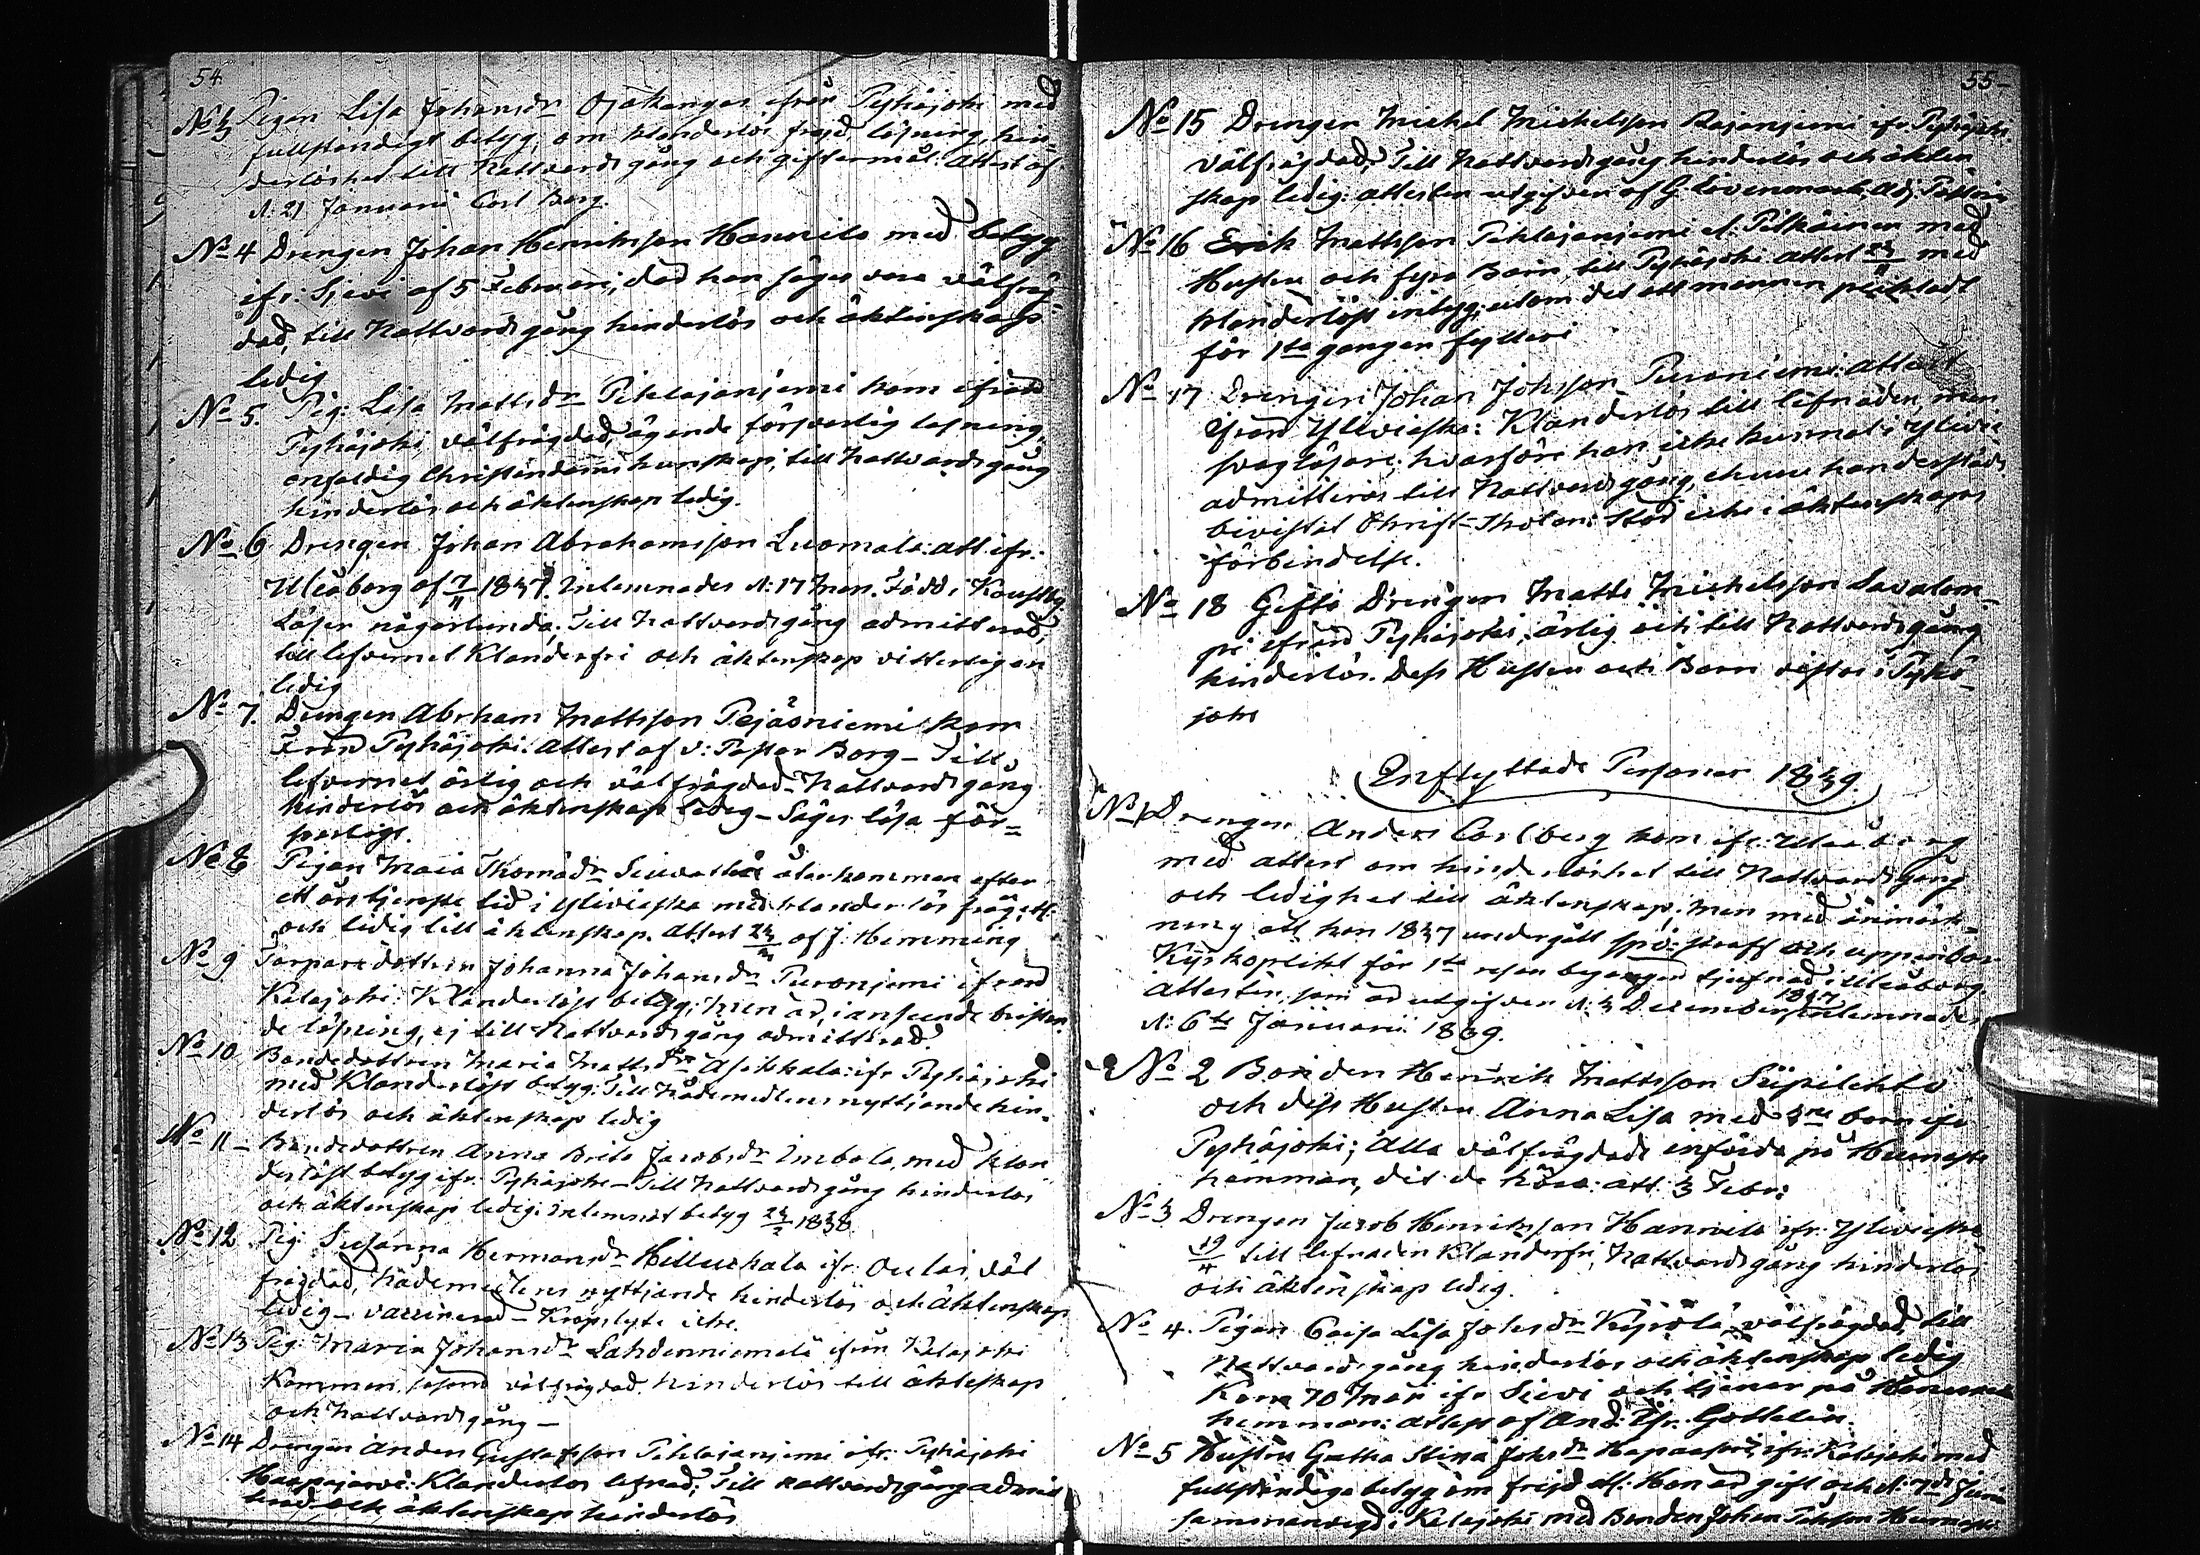 54.
No 3 Pigan Lisa Johansdr Ojakangas ifrån Pyhäjoki med
fullständigt betyg, om klanderlös frejd, läsning, hin-
derlöshet till Nattvardsgång och giftermål. Attest af
d: 21 Januarii Carl Borg.
No 4 Drengen Johan Henriksson Hannila med betyg
ifr: Sievi af 5 Februari, der han säges vara välfräg-
dad, till Nattvardsgång hinderlös och äktenskaps
ledig
No 5. Pig: Lisa Mattsdr Pihlajaniemi kom ifrån
Pyhäjoki, välfrägdad, ägande försvarlig läsning,
enfaldig Christendoms kunskap, till Nattvardsgång
hinderlös och äktenskap ledig.
No 6 Drengen Johan Abrahamsson Luomala: att. ifr.
Uleåborg af 7/11 1837. Inlemnades d: 17 Mars. Född i Kaustby
Läser någorlunda, Till Nattvardsgång admitterad,
till lefvernet Klanderfri och äktenskap vitterligen
ledig
No 7. Drengen Abrham Mattsson Pejäsniemi kom
Från Pyhäjoki: Attest af v: Pastor Borg - Till
lefvernet ärlig och välfrägdad - Nattvardsgång
hinderlös och äktenskap ledig - Säges läsa för=
svarligt.
No 8 Pigan Maria Thomädr återkommen efter
ett års tjenste tid i Ylivieska med klanderlös frägd
och ledig till äktenskap. Attest af J. Hemming
No 9 Torparedottren Johanna Johansdr Puronjemi ifrån
Kalajoki: Klanderlöst betyg; men är, i anseende bristan-
de läsning, ej till Nattvardsgång admitterad.
No 10 Bondedottren Maria Mattsdr Asikkala: ifr Pyhäjoki
med Klanderlöst betyg: Till Nådemedlens nyttjande hin-
derlös och äktenskap ledig
No 11 - Bondedottren Anna Brita Jacobsdr Imbola, med klan
derlöst betyg ifr. Pyhäjoki - Till Nattvardsgång hinderlös
och äktenskap ledig. Inlemnat betyg 1838
No 12 Pig: Susanna Hermansdr Hilluskala ifr Oulais väl
frägdad, Nådemedlens nyttjande hinderlös och äktenskap
ledig - vaccinerad - Kropslyte icke.
No 13 Pig: Maria Johansdr Lahdenniemelä ifrån Kalajoki
Kommen, välfrägdad, hinderlös till äktenskap
och Nattvardsgång -
No 14 Drengen Anders Gustafsson Pihlajaniemi ifr. Pyhäjoki
Haapajärvi: Klanderlös lefnad, Till nattvardsgång admit
terad och äktenskap hinderlös
55-
No 15 Drengen Michel Michelsson Rajaniemi ifr. Pyhäjoki
välfrägdad, Till Nattvardsgång hinderlös och äkten
skap ledig: attesten utgifven af G. Lövenmark, Adj: Pastoris
No 16 Erik Mattsson Pihlajaniemi el. Pitkäinen med
Hustru och fyra Barn, till Pyhäjoki attest med
klanderlöst intyg, utom det att mannen pliktadt
för 1sta gången fylleri
No 17 Drengen Johan Johsson Puroniemi: attest
ifrån Ylivieska: Klanderlös till lefnaden, men
svag läsare, hvarföre han icke kunnat i Ylivie
admitteras till Nattvardsgång, ehuru han derstäds
bevistat Christ-skolan: Stod icke i äktenskaps
förbindelse.
No 18 Gifta Drengen Matts Michelsson Savalam-
pi ifrån Pyhäjoki, ärlig och till Nattvardsgång
hinderlös. Dess Hustru och Barn vistas i Pyhä-
joki
Inflyttade Personer 1839.
No 1 Drengen Anders Carlberg kom ifr: Uleåborg
med attest om hinderlöshet till Nattvardsgång
och ledighet till äktenskap. Men med anmärk-
ning att han 1837 undergått spö-straff och uppenbar
Kyrkoplikt för 1sta resan begången tjufnad i Uleåborg.
Attesten, som är utgifven d: 3 December 1837 inlemnades
d: 6te Januarii 1839.
No 2 Bonden Henrik Mattsson Siipilehto
och dess Hustru Anna Lisa med 3ne barn ifr
Pyhäjoki; Alla välfrägdade införda på Heusala
hemman, dit de höra: att. 3 Febr:
No 3 Drengen Jacob Henriksson Hannila ifr. Ylivieska
19/4 till lefnaden Klanderfri, Nattvardsgång hinderlös
och äktenskap ledig.
No 4. Pigan Caisa Lisa Johsdr Kyrölä, välfrägdad, till
Nattvardsgång hinderlös och äktenskap ledig
Kom 10 Mar ifr Sievi och tjenar på
hemman: attest af And: Gottleben.
No 5 Hustru Greta Stina Johsdr Hapaasaari ifr: Kalajoki med
fullständiga betyg om frejd. Hon är gift och d: 7de Junii
sammanvigd i Kalajoki med Bonden Johan